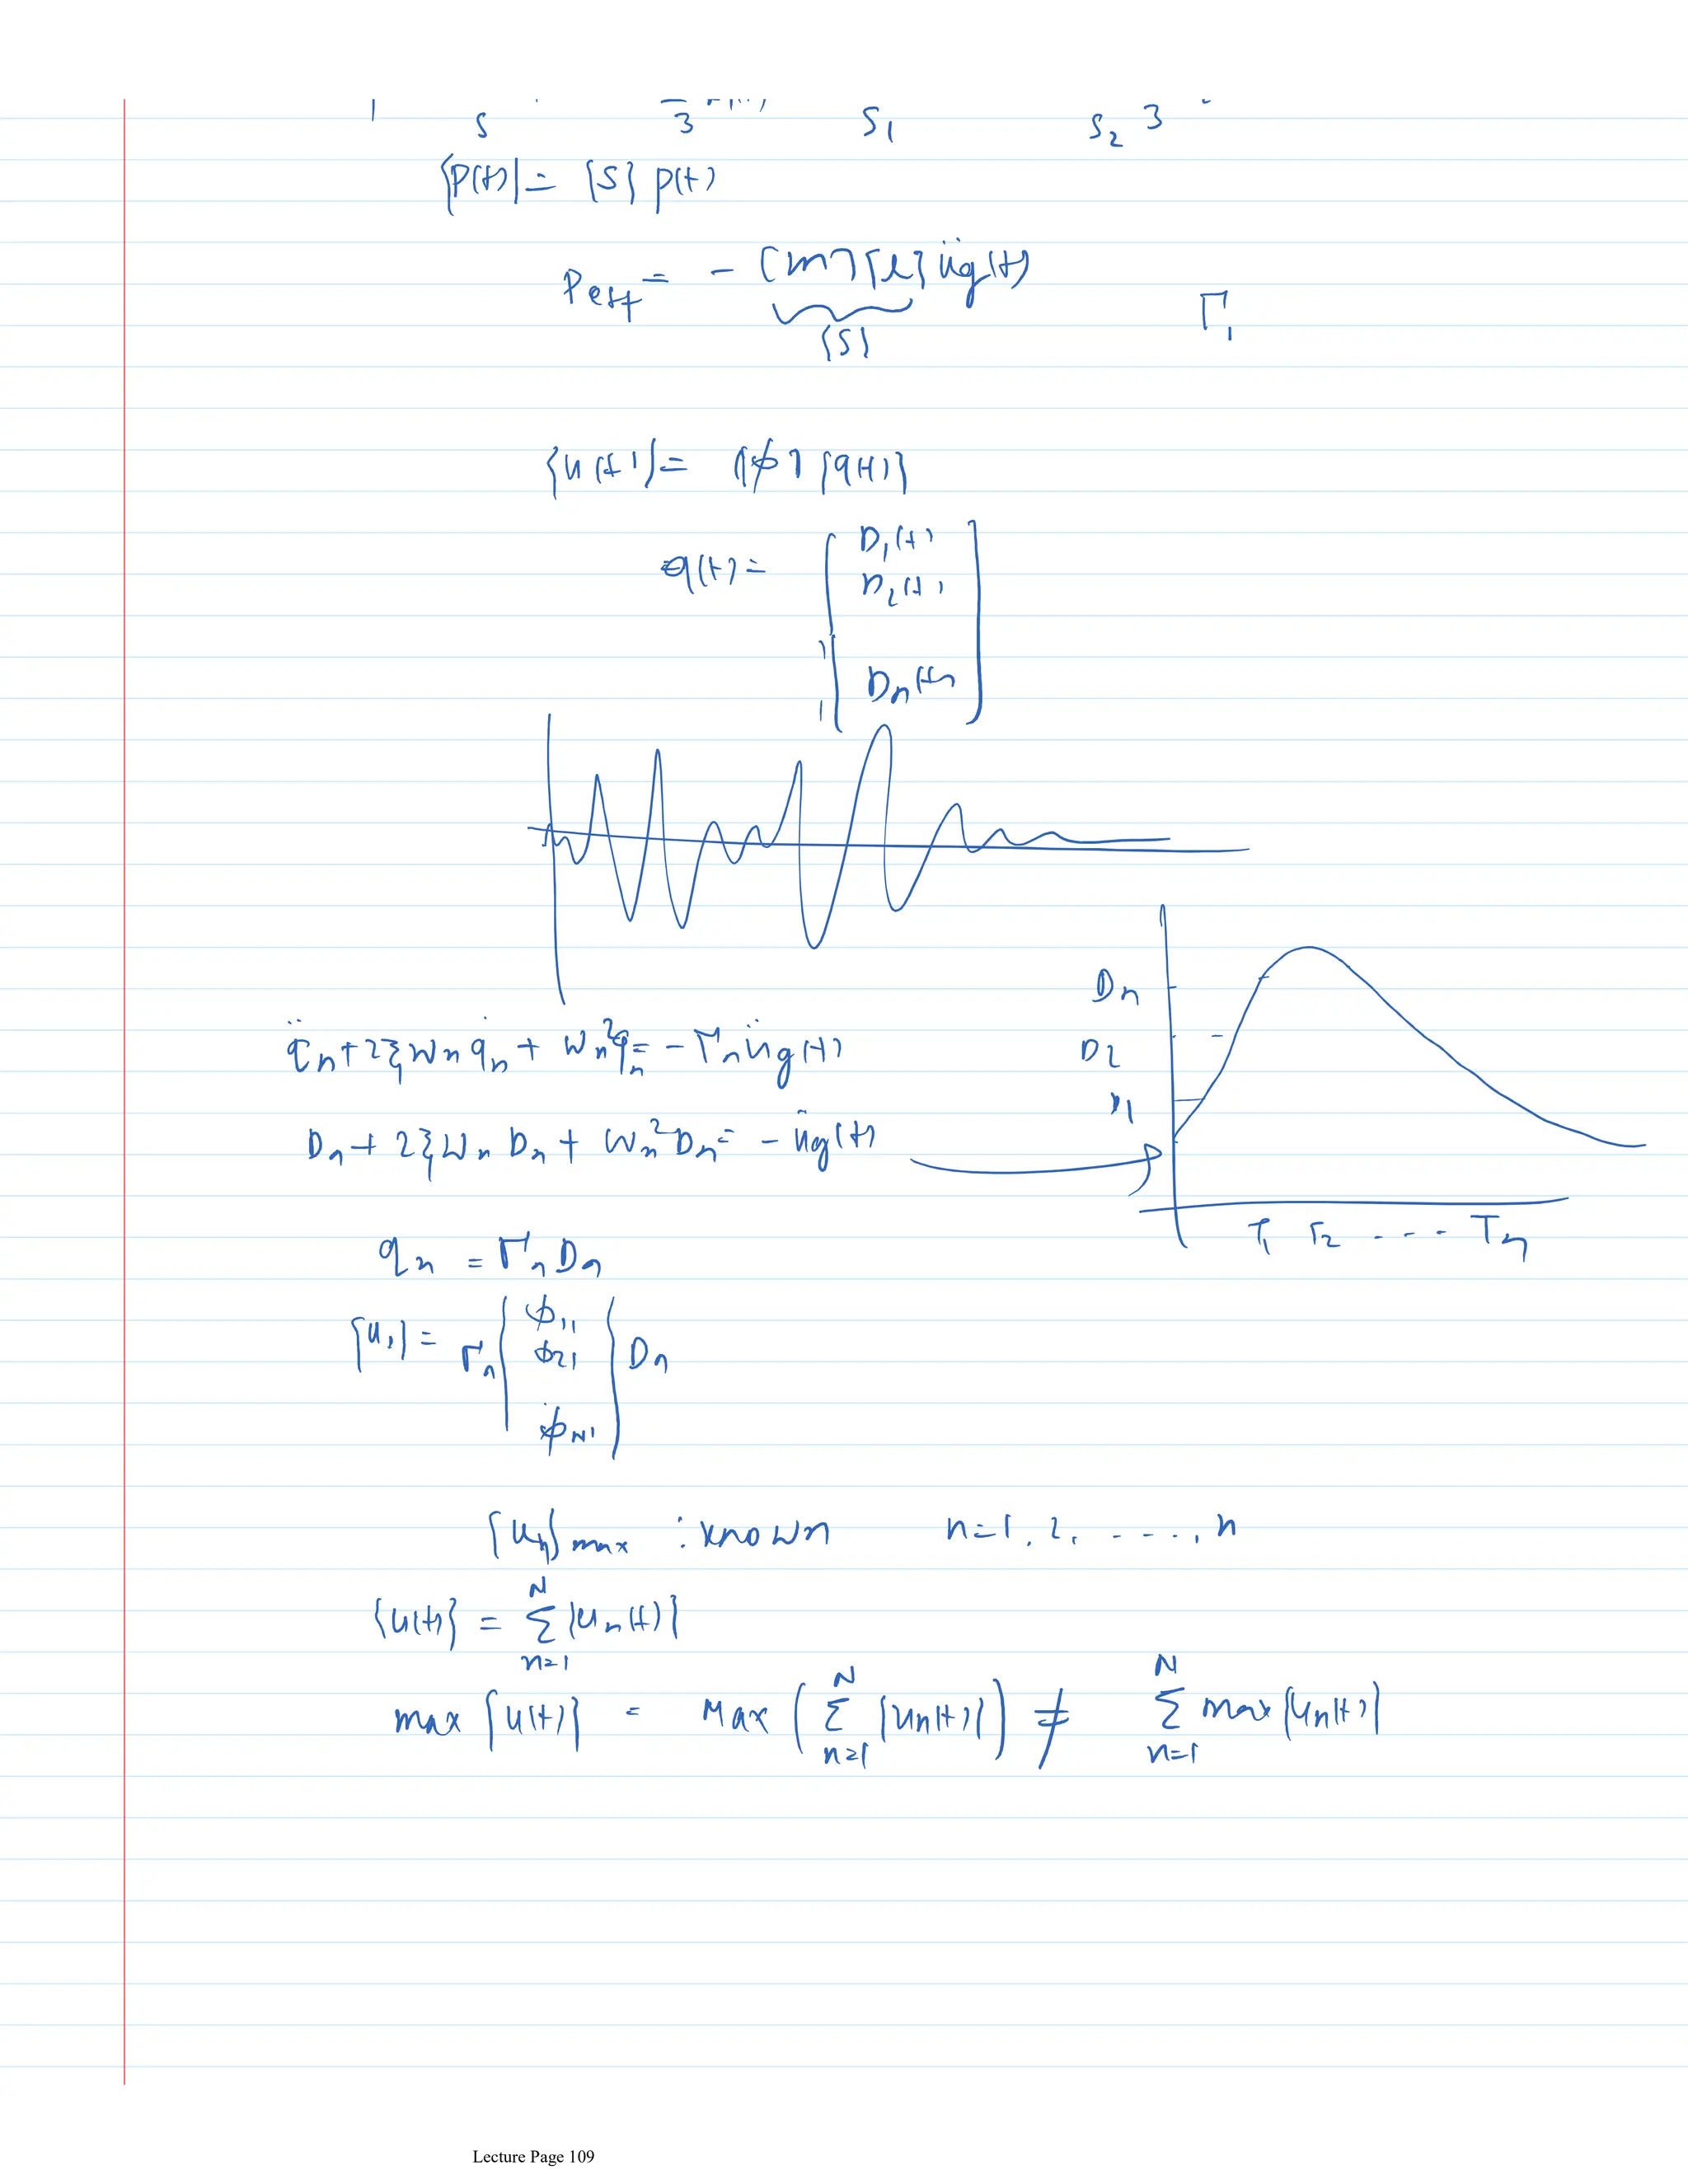 s 3 S₁ S₂ 3
{P(t)} = {S} p(t)
Peff = - [m]{l} üg(t)
{S} Γ₁
{u(t)} = [ϕ] {q(t)}
q(t) = [ D₁(t)
D₂(t)
Dn(t) ]
q̈n + 2ξωn q̇n + ωn² qn = - Γn üg(t)
Dn + 2ξωn Dn + ωn² Dn = - üg(t)
Dn
D2
D1
T₁ T₂ - - - Tn
qn = Γn Dn
{u₁} = Γn { ϕ11
ϕ21
ϕN1 } Dn
{un}max : known n=1, 2, - - - -, n
{u(t)} = Σ_{n=1}^{N} {un(t)}
max {u(t)} = Max ( Σ_{n=1}^{N} {un(t)} ) ≠ Σ_{n=1}^{N} max {un(t)}
Lecture Page 109